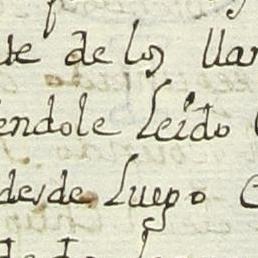 te de los llan
endole Leido
desde Luego